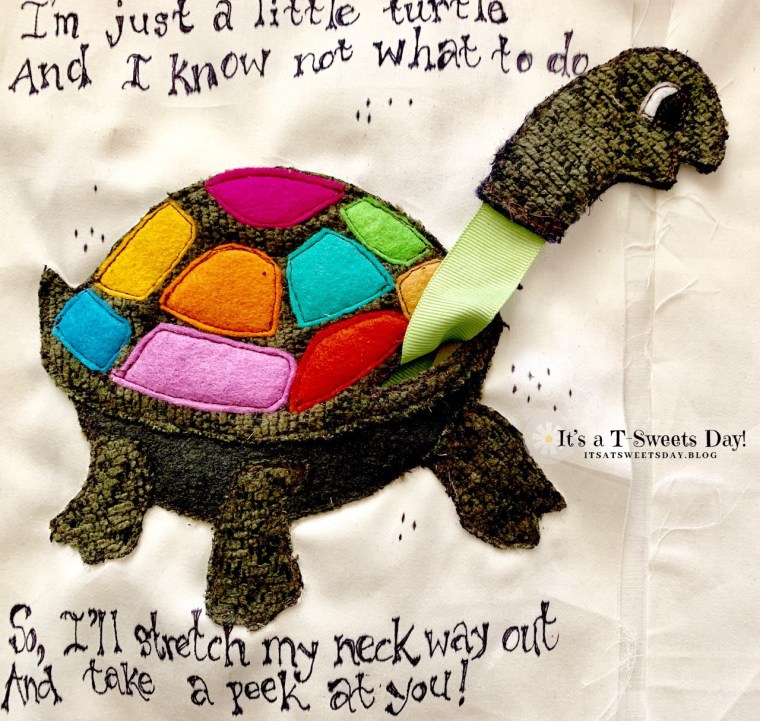 I'm just a little turtle
And I know not what to do
It's a T-Sweets Day!
ITSATSWEETSDAY.BLOG
So, I'll stretch my neck way out
And take a peek at you!